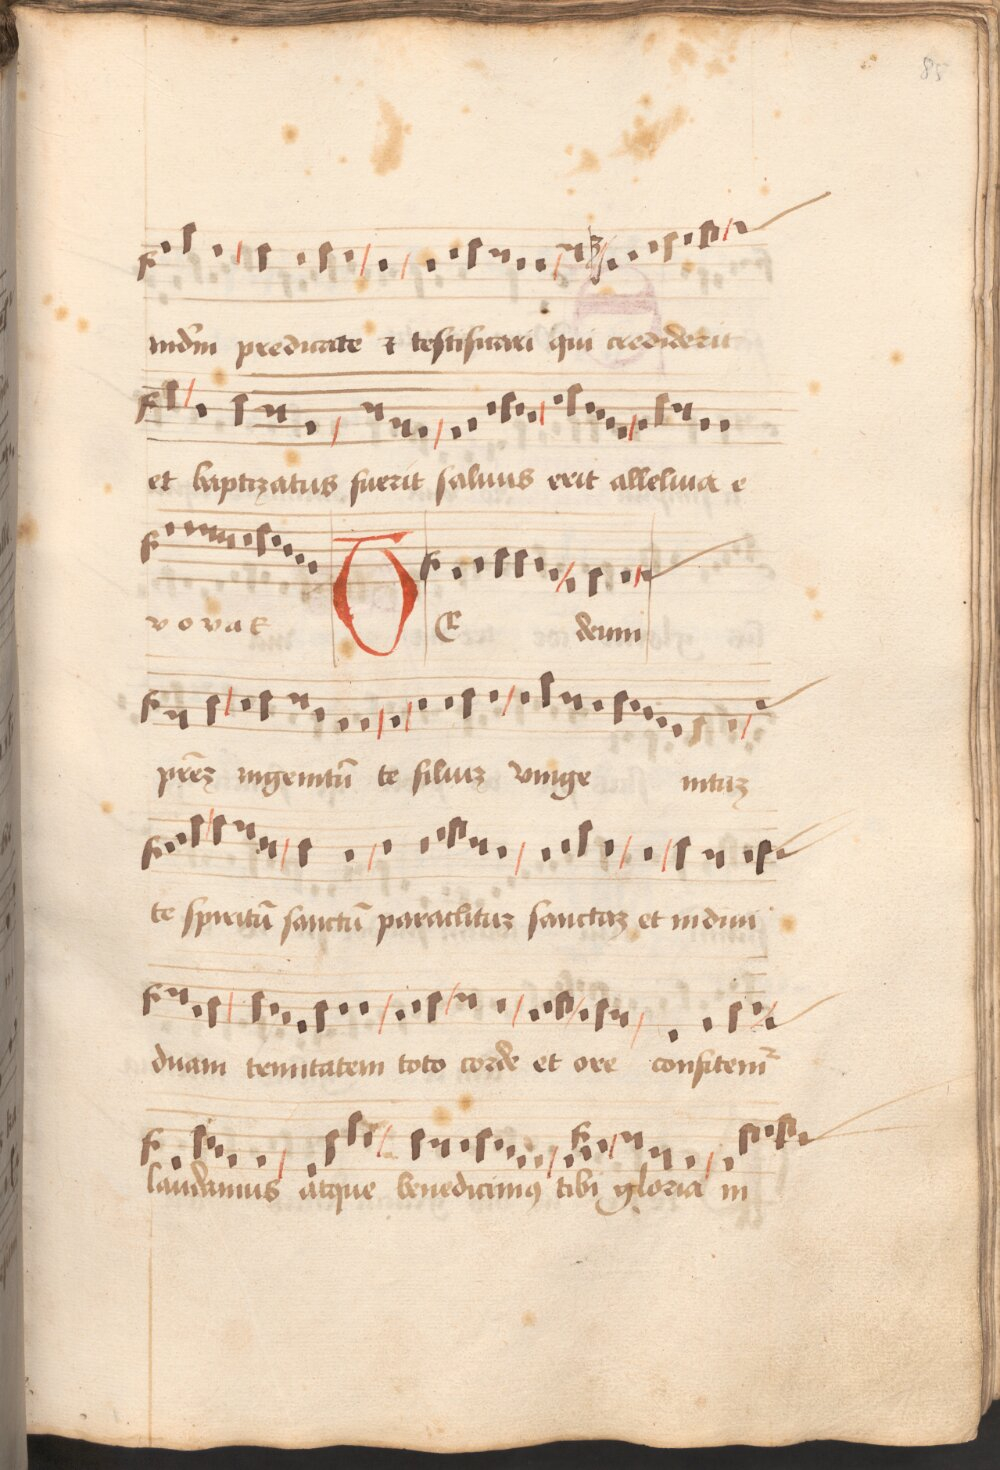 85
mdm̄ predicate ⁊ testificari qui crediderit
et baptizatus fuerit saluus erit alleluia e
v o v a e
TE deum
prēꝫ ingenitū te filiuꝫ vnige nituꝫ
te spiritū sanctū paraclituꝫ sanctaꝫ et indiui
duam trinitatem toto corde et ore confitem̄
laudamus atque benedicimꝰ tibi gloria in